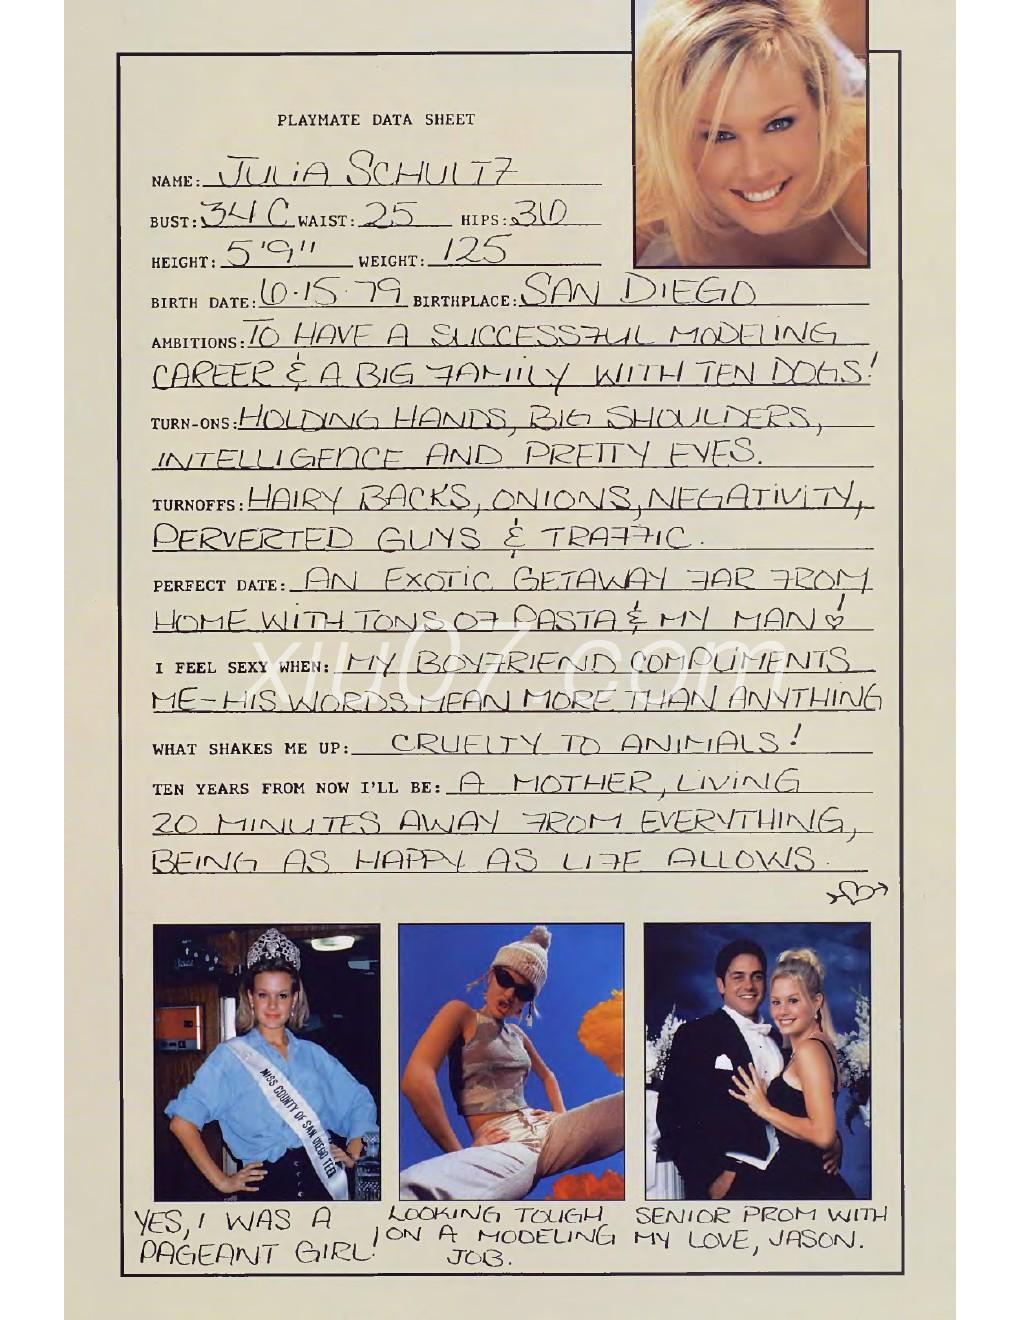 PLAYMATE DATA SHEET
NAME: JULIA SCHULTZ
BUST: 34C WAIST: 25 HIPS: 36
HEIGHT: 5'9" WEIGHT: 125
BIRTH DATE: 6·15·79 BIRTHPLACE: SAN DIEGO
AMBITIONS: TO HAVE A SUCCESSFUL MODELING
CAREER & A BIG FAMILY WITH TEN DOGS!
TURN-ONS: HOLDING HANDS, BIG SHOULDERS,
INTELLIGENCE AND PRETTY EYES.
TURNOFFS: HAIRY BACKS, ONIONS, NEGATIVITY,
PERVERTED GUYS & TRAFFIC.
PERFECT DATE: AN EXOTIC GETAWAY FAR FROM
HOME WITH TONS OF PASTA & MY MAN!
I FEEL SEXY WHEN: MY BOYFRIEND COMPLIMENTS
ME-HIS WORDS MEAN MORE THAN ANYTHING
xiu07.com
WHAT SHAKES ME UP: CRUELTY TO ANIMALS!
TEN YEARS FROM NOW I'LL BE: A MOTHER, LIVING
20 MINUTES AWAY FROM EVERYTHING,
BEING AS HAPPY AS LIFE ALLOWS.
MISS COUNTY OF SAN DIEGO TEEN
YES, I WAS A
PAGEANT GIRL!
LOOKING TOUGH
ON A MODELING
JOB.
SENIOR PROM WITH
MY LOVE, JASON.